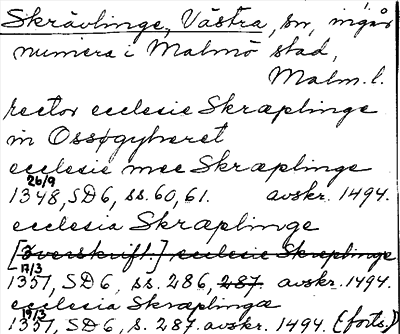 Skrävlinge, Västra, sn, ingår
numera i Malmö stad,
Malm. l.
rector ecclesie Skræplinge
in Ossøgyheret
ecclesie mee Skræplinge
26/9
1348, SD 6, ss. 60, 61. avskr. 1494.
ecclesia Skræplinge
[Överskrift:] ecclesie Skræplinge
17/3
1351, SD 6, ss. 286, 287. avskr. 1494.
ecclesia Skræplingæ
19/3
1351, SD 6, s. 287. avskr. 1494. (forts.)